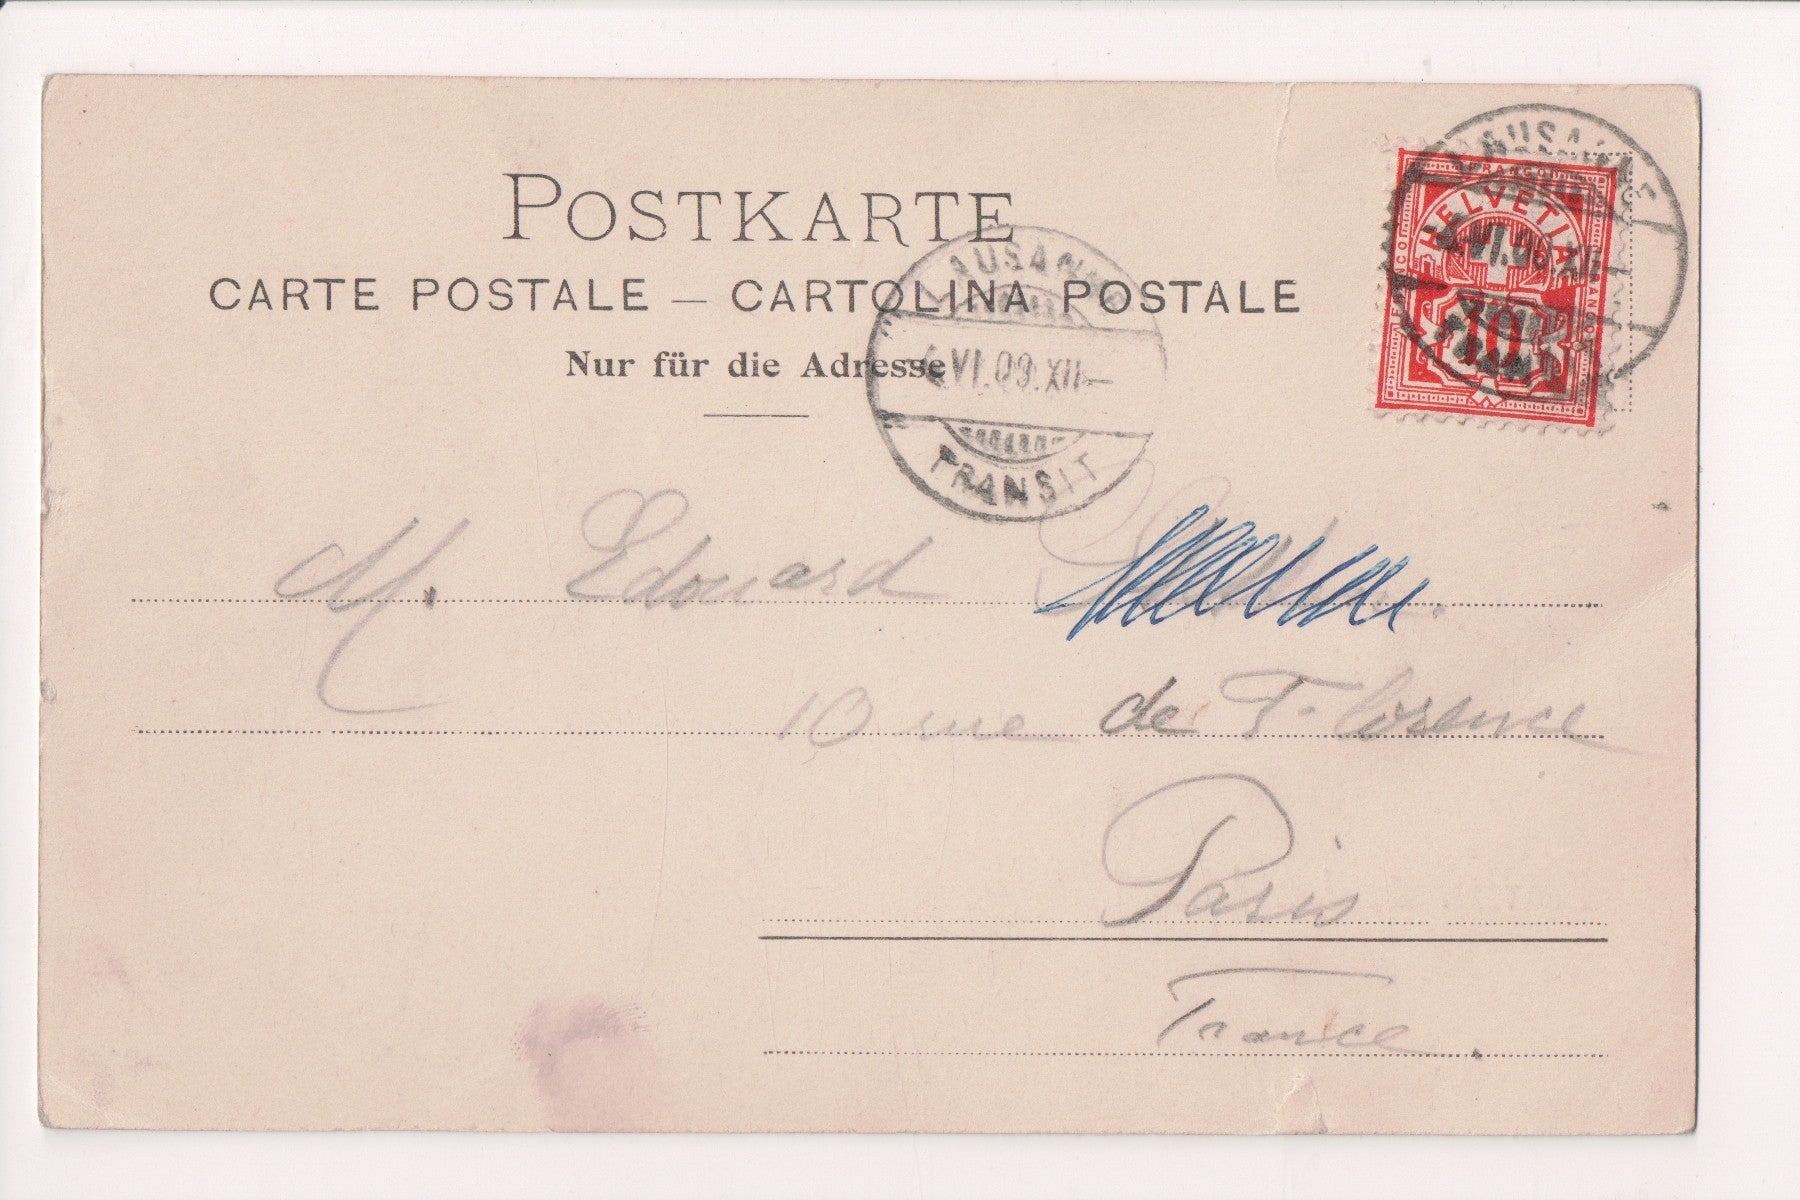 POSTKARTE
CARTE POSTALE — CARTOLINA POSTALE
Nur für die Adresse
LAUSANNE
VI.09.XII—
TRANSIT
LAUSANNE
VI.09.XII
TRAN
FRANCO
HELVETIA
FRANCO
10
M. Edouard
10 rue de Florence
Paris
France.